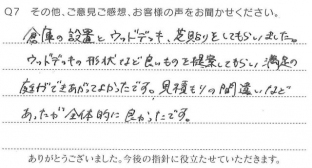 Q7 その他、ご意見ご感想、お客様の声をお聞かせください。
倉庫の設置とウッドデッキ、芝貼りをしてもらいました。
ウッドデッキの形状など良いものを提案してもらい、満足の
庭ができあがってよかったです。見積もりの間違いなど
あったが全体的に良かったです。
ありがとうございました。今後の指針に役立たせていただきます。